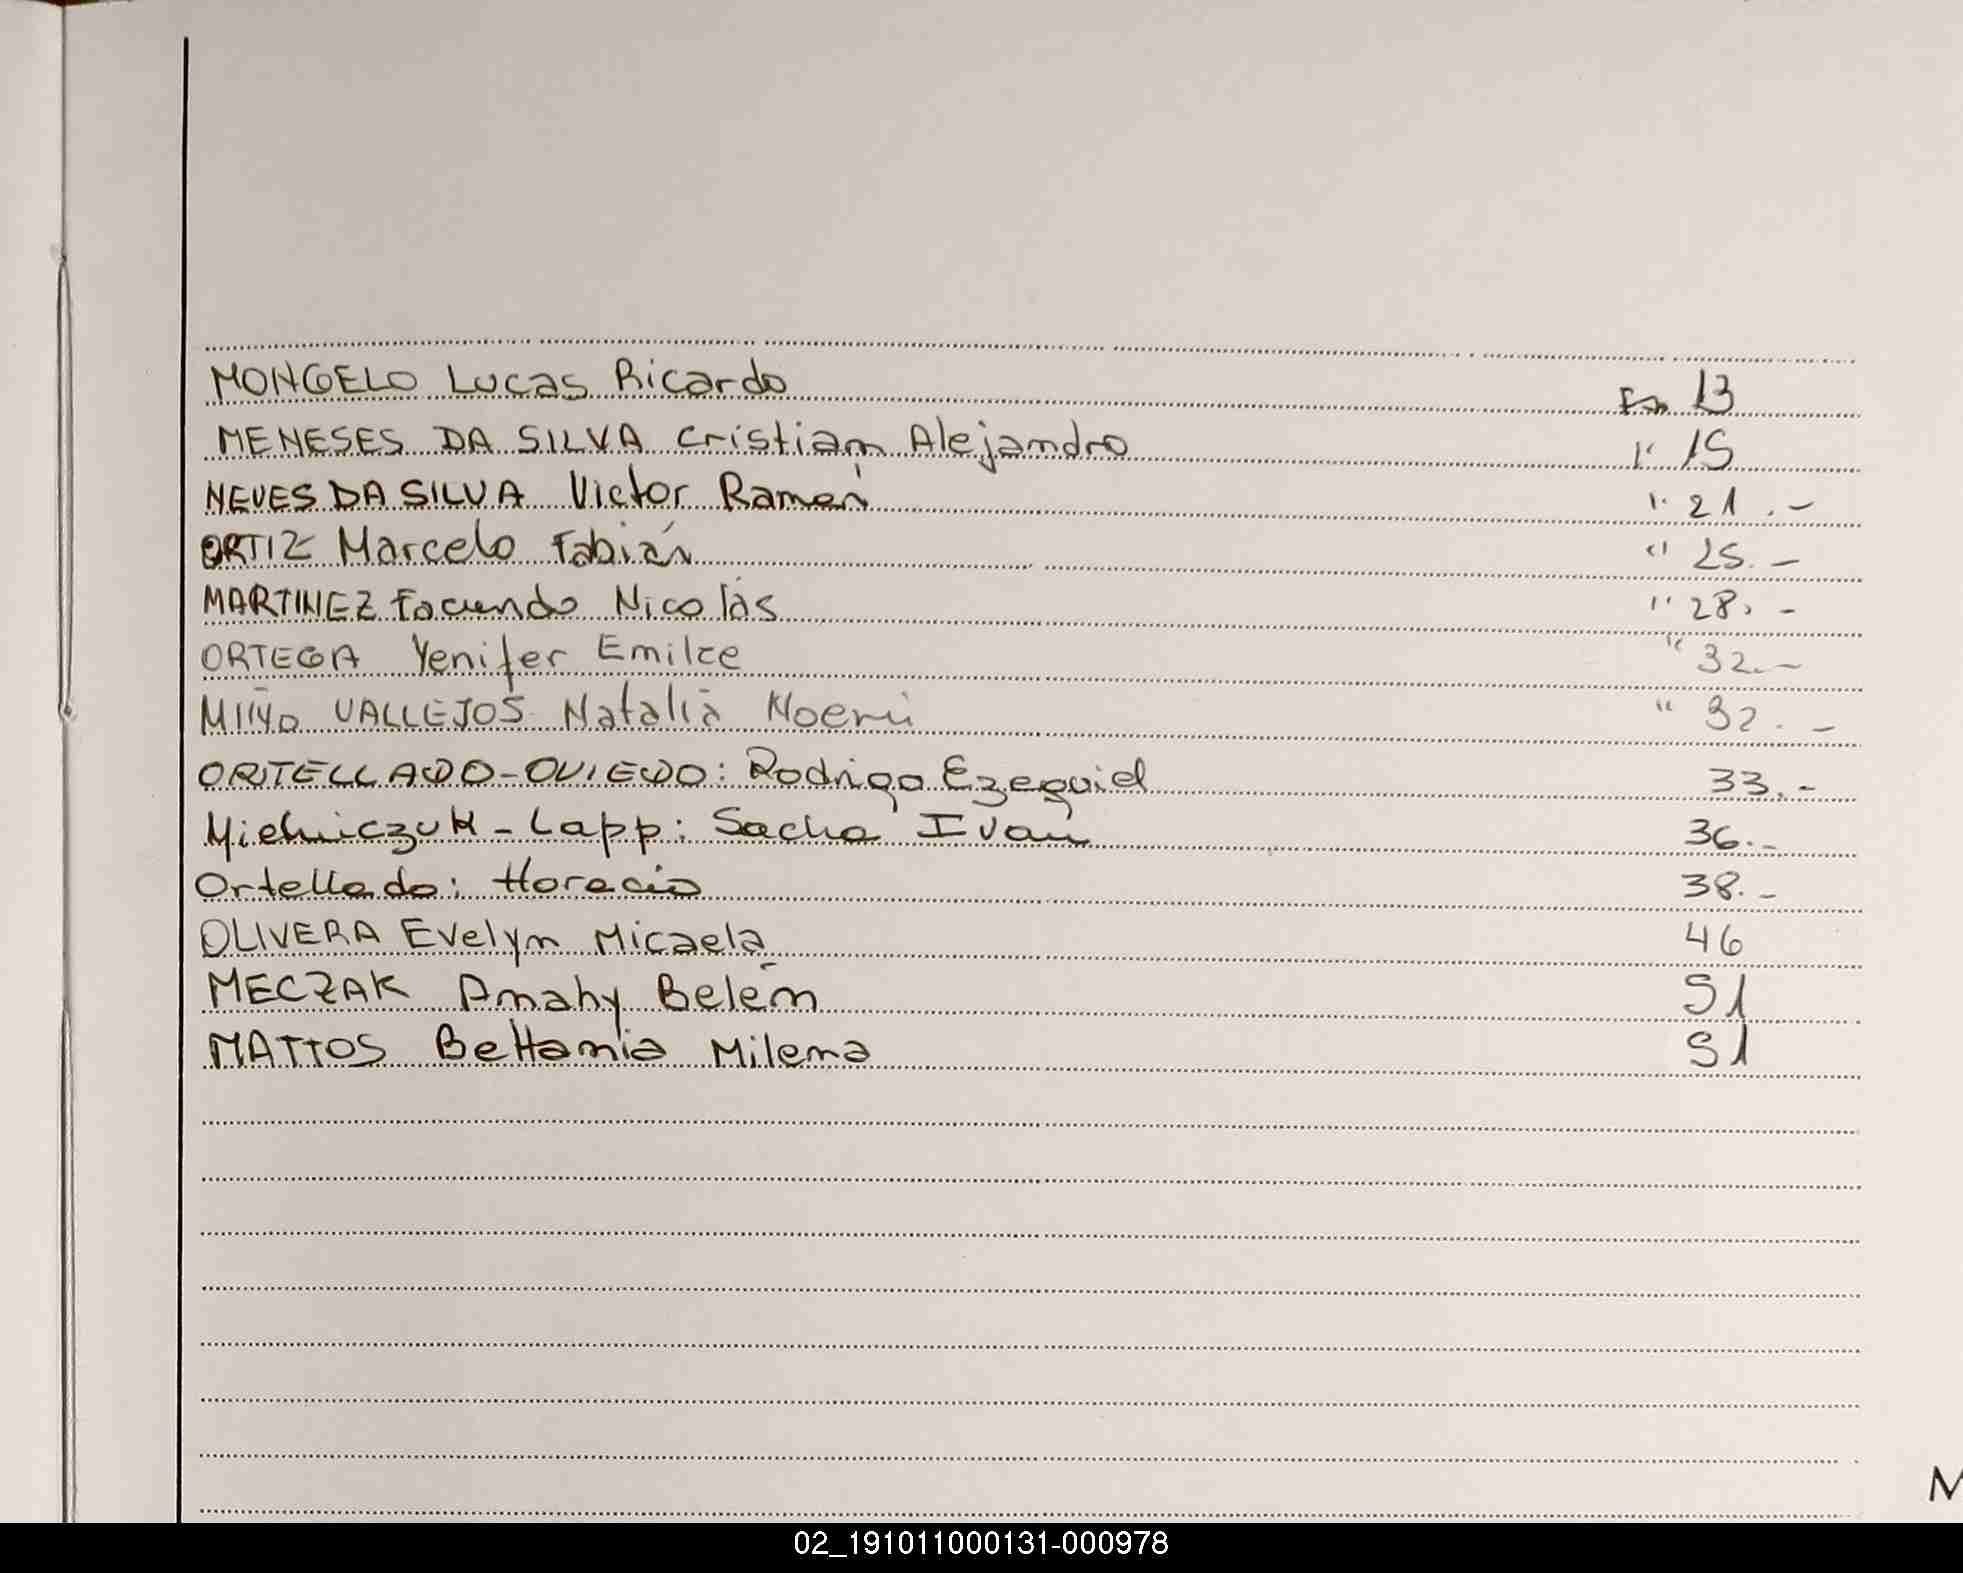 MONGELO Lucas Ricardo Fo 13
MENESES DA SILVA Cristiam Alejandro " 15
NEVES DA SILVA Victor Ramón " 21.-
ORTIZ Marcelo Fabián " 25.-
MARTINEZ Facundo Nicolás " 28.-
ORTEGA Yenifer Emilce " 32.-
MIÑO VALLEJOS Natalia Noemi " 32.-
ORTELLADO-OVIEDO: Rodrigo Ezequiel 33.-
Mielniczuk-Lapp: Sacha Iván 36.-
Ortellado: Horacio 38.-
OLIVERA Evelym Micaela 46
MECZAK Amahy Belém 51
MATTOS Bettania Milena 51
M
02_191011000131-000978